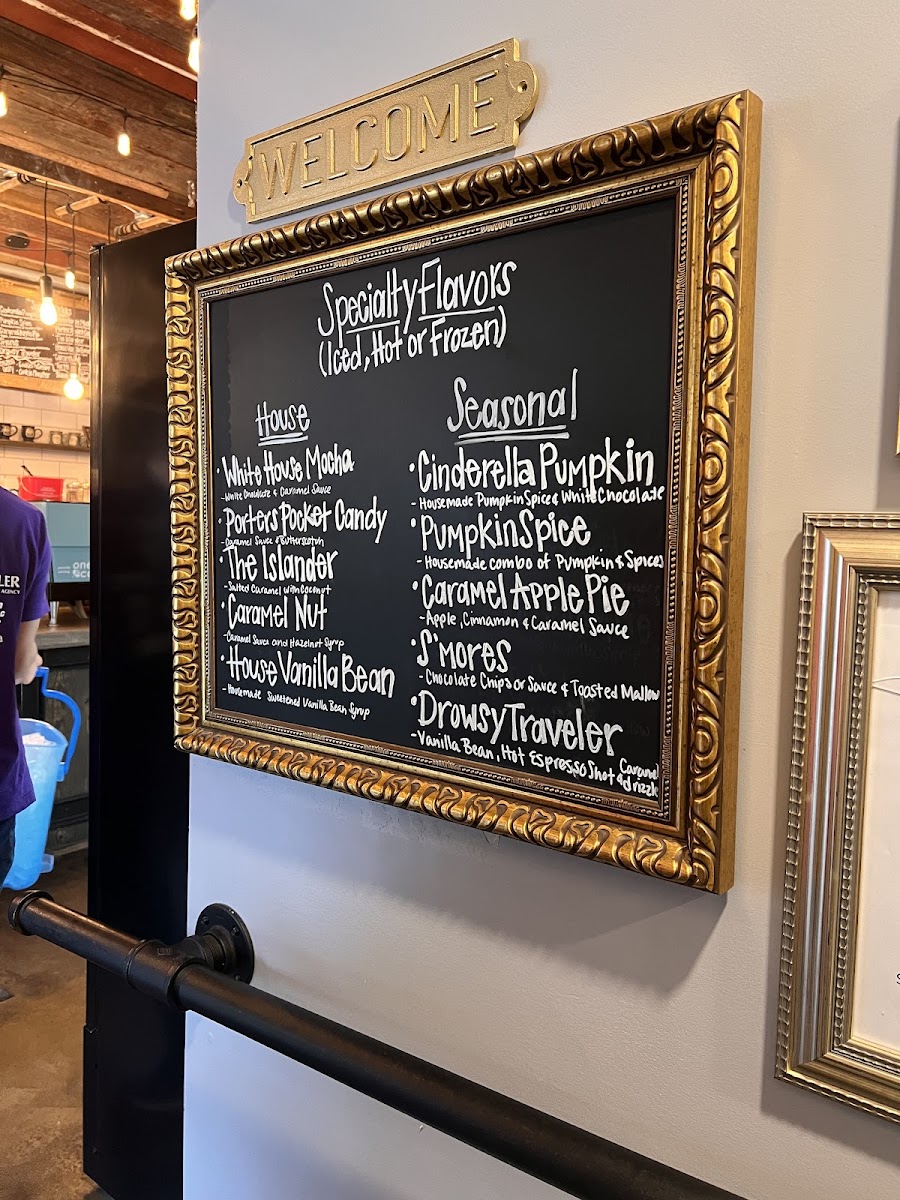 WELCOME
Specialty Flavors
(Iced, Hot or Frozen)
House
• White House Mocha
- White Chocolate & Caramel Sauce
• Porters Pocket Candy
- Caramel Sauce & Butterscotch
• The Islander
- Salted Caramel with coconut
• Caramel Nut
- Caramel Sauce and Hazelnut Syrup
• House Vanilla Bean
- Housemade Sweetened Vanilla Bean Syrup
Seasonal
• Cinderella Pumpkin
- Housemade Pumpkin Spice & White Chocolate
• Pumpkin Spice
- Housemade combo of Pumpkin & Spices
• Caramel Apple Pie
- Apple, Cinnamon & Caramel Sauce
• S'mores
- Chocolate Chips or Sauce & Toasted Mallow
• Drowsy Traveler
- Vanilla Bean, Hot Espresso Shot & Caramel drizzle
LER
AGENCY